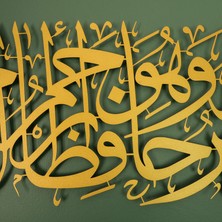 حافظا وهو أرحم